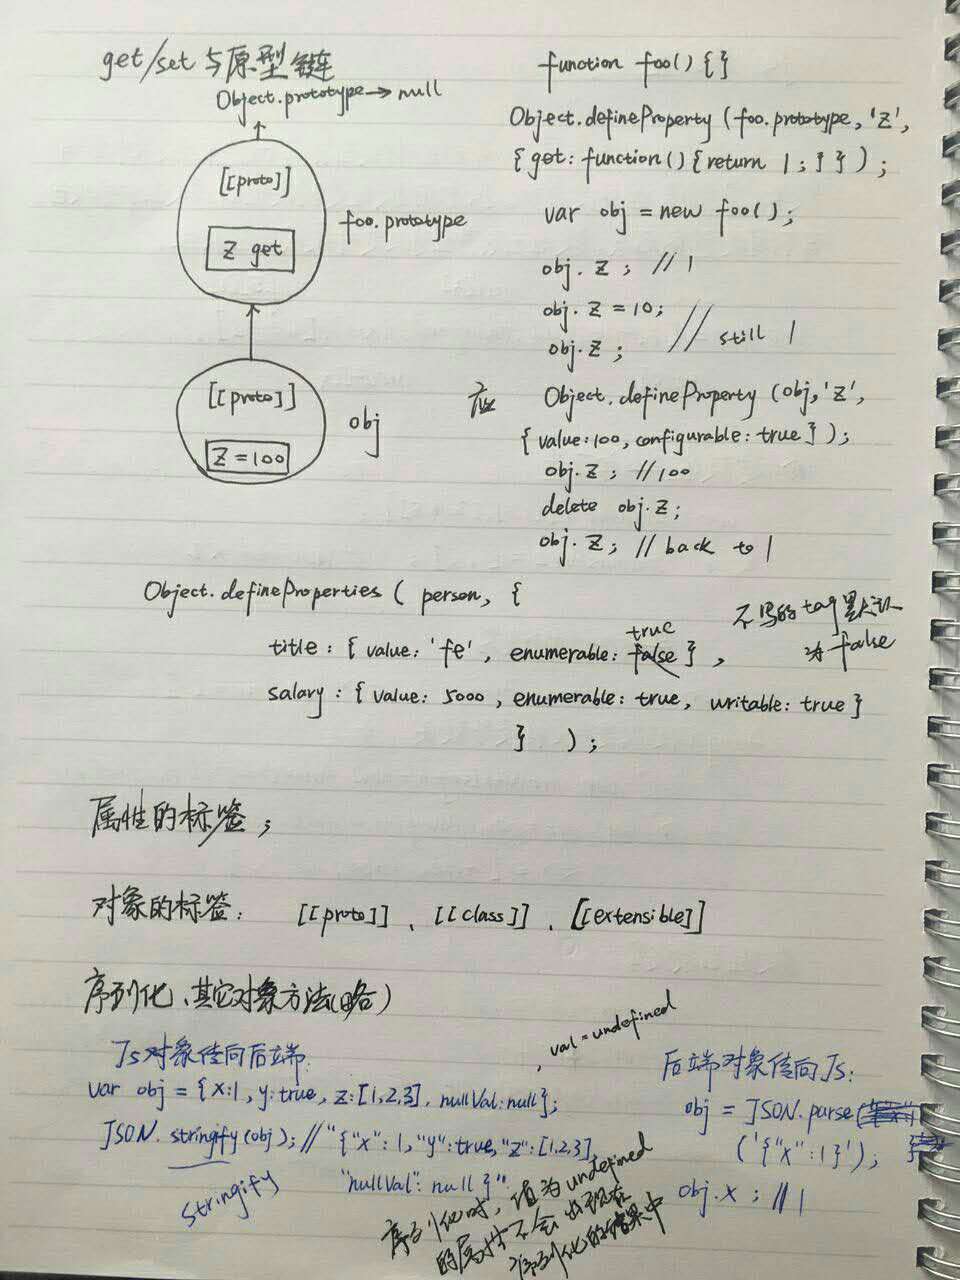 get/set与原型链
Object.prototype → null
[[proto]]
z get
foo.prototype
[[proto]]
z=100
obj
function foo(){}
Object.defineProperty(foo.prototype,'z',
{get:function(){return 1;}});
var obj=new foo();
obj.z; //1
obj.z=10;
obj.z; // still 1
应 Object.defineProperty(obj,'z',
{value:100,configurable:true});
obj.z; //100
delete obj.z;
obj.z; // back to 1
Object.defineProperties(person,{
title:{value:'fe',enumerable:false},
true
不写的tag默认
为false
salary:{value:5000,enumerable:true,writable:true}
});
属性的标签;
对象的标签: [[proto]]、[[class]]、[[extensible]]
序列化、其它对象方法(略)
Js对象传向后端:
, val=undefined
var obj={x:1,y:true,z:[1,2,3],nullVal:null};
JSON.stringify(obj);//"{"x":1,"y":true,"z":[1,2,3],
"nullVal":null}"
stringify
序列化时,值为undefined
的属性不会出现在
序列化的结果中
后端对象传向Js:
obj=JSON.parse(
('{"x":1}');
obj.x; //1